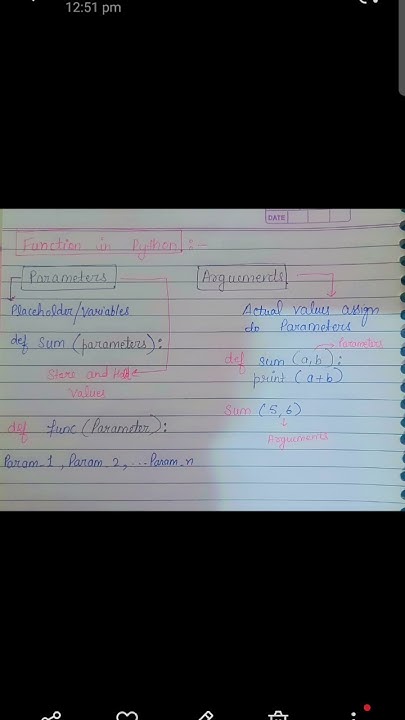 12:51 pm
DATE
Function in Python :-
Parameters
Placeholder/Variables
def Sum (parameters):
Store and Hold
Values
def func (Parameter):
Param_1, Param_2, ... Param_n
Arguements
Actual values assign
do Parameters
Parameters
def sum (a,b):
print (a+b)
Sum (5,6)
Arguements